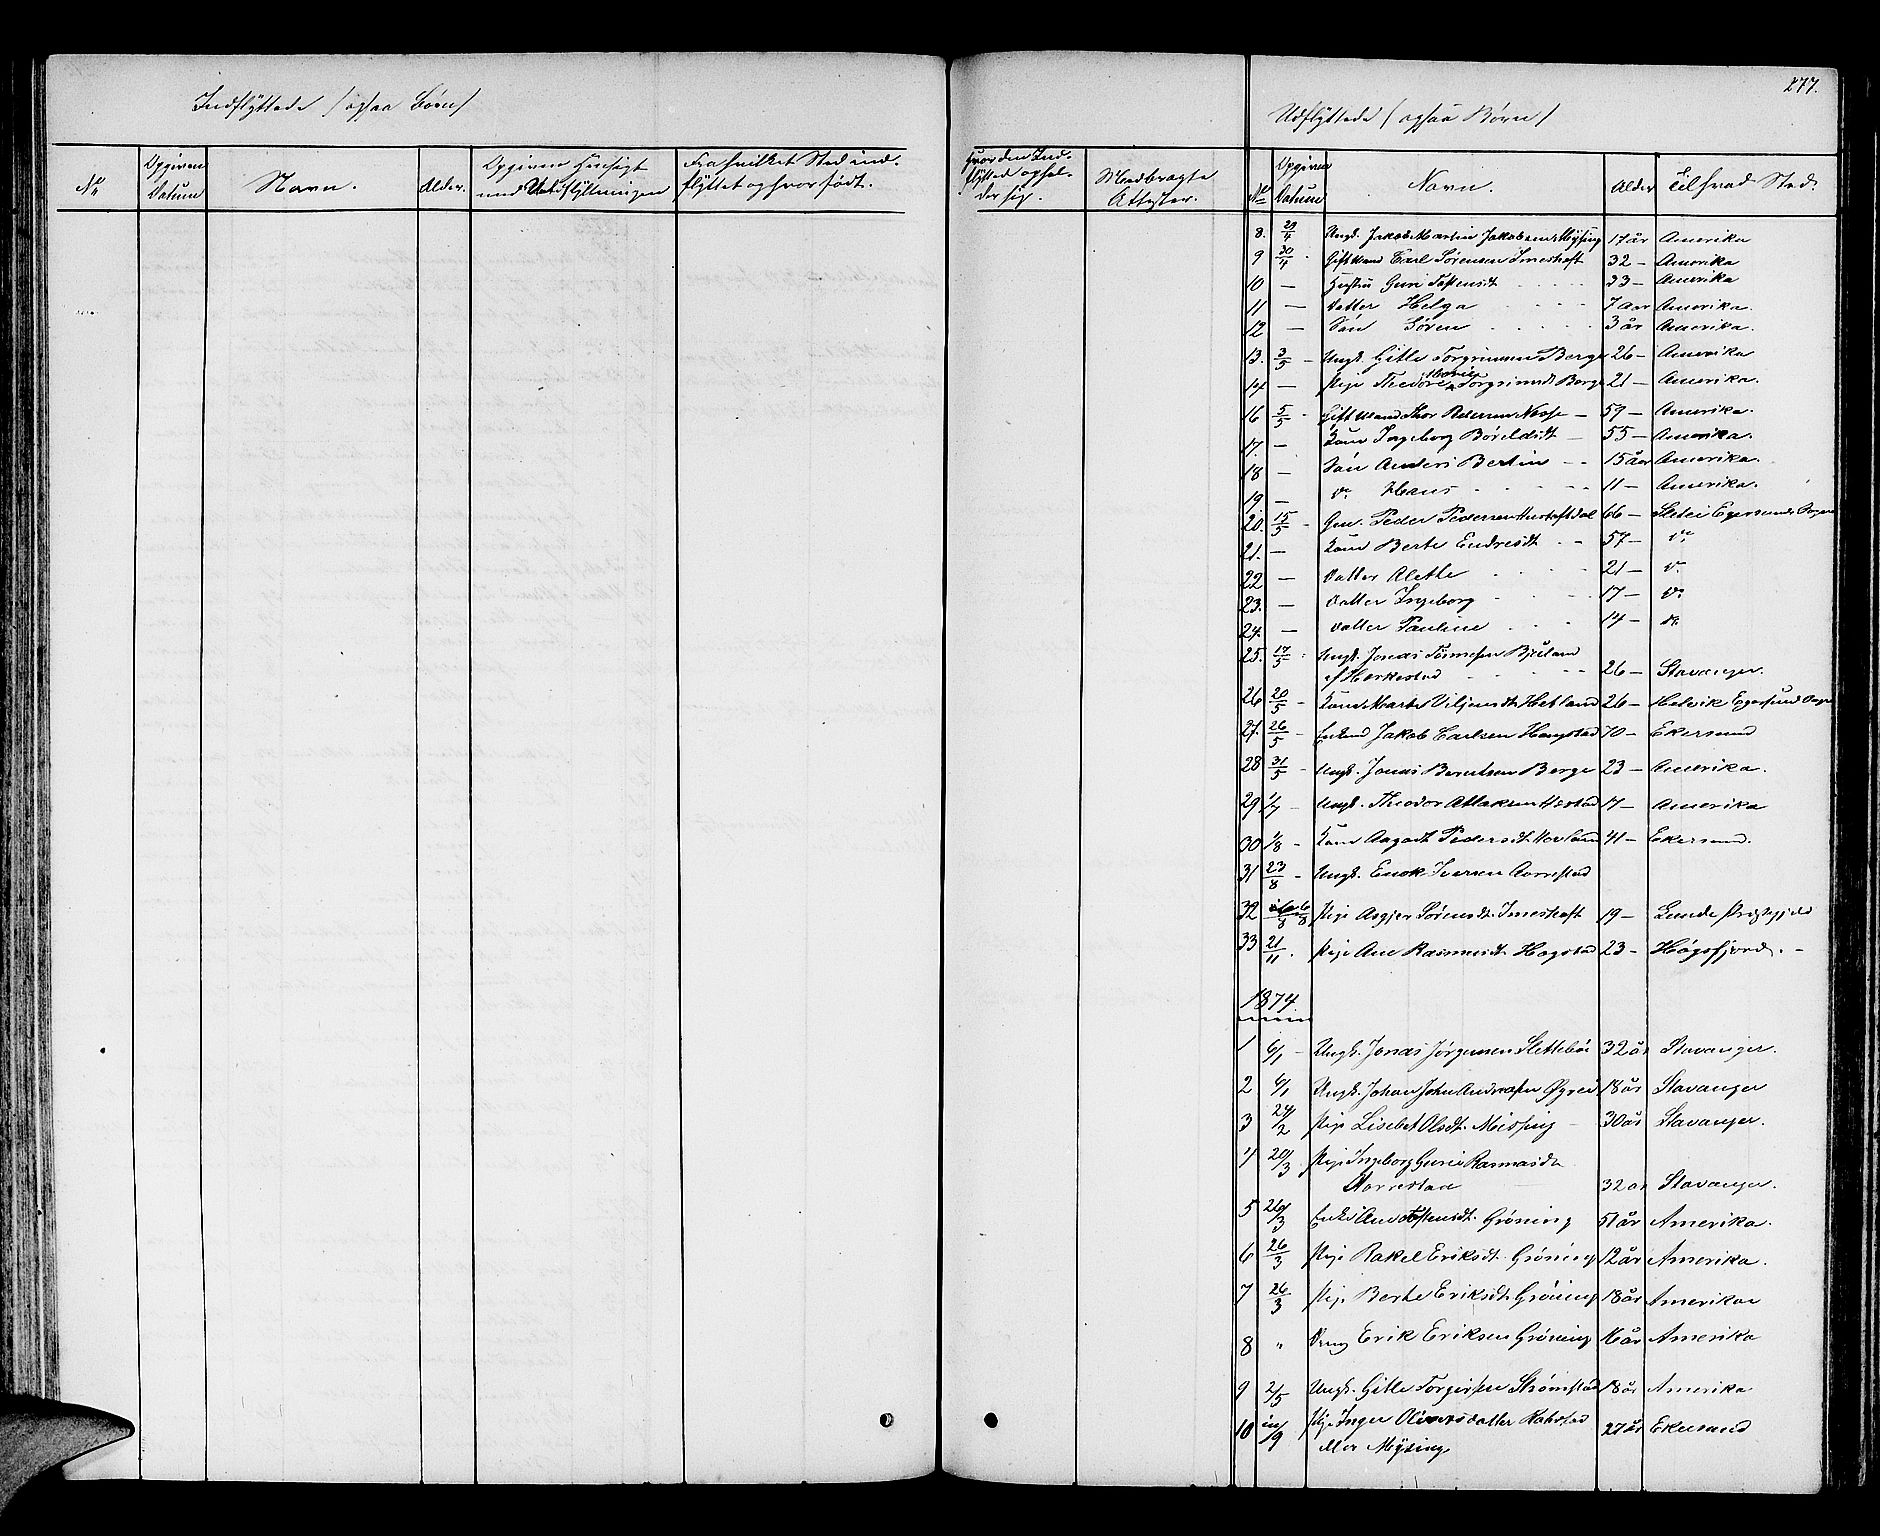 277.
Indflyttede /ogsaa Børn/
No
Opgiven Datum
Navn.
Alder.
Opgiven Hensigt med Indflytningen
Fra hvilket Sted indflyttet og hvor født.
Hvor den Indflytted opholder sig.
Medbragte Attester.
Udflyttede /ogsaa Børn/
No
Opgiven Datum
Navn.
Alder
Til hvad Sted.
8. 29/4 Ungk. Jakob Martin Jakobsen Mysing 17 år Amerika
9 30/4 Gift Mand Carl Sørensen Imeshaft 32 — Amerika
10 — Hustru Guri Tostensdt 33 — Amerika
11 — Datter Helga 7 aar Amerika.
12 — Søn Søren 3 år Amerika.
13. 3/5 — Ungk. Gitle Torgrimsen Berge 26 — Amerika
14 — Pige Theodore Marie Torgrimsdt Berge 21 — Amerika.
16 5/5 Gift Mand Thor Pedersen Nesse — 59 — Amerika.
17. — Kone Ingeborg Børeldsdt — 55 — Amerika.
18 — Søn Anders Bertin 15 åar Amerika.
19 — do Hans 11 — Amerika.
20. 15/5 Gm. Peder Pedersen 66 — Egersunds Sogn
21. — Kone Berte Endresdt 57 — do
22 — Datter Alette 21 — do
23. — Datter Ingeborg 17 — do
24. — Datter Pauline 14 — do
25. 17/5 Ungk. Jonas Tønnesen Bjuland
af Herkestad 26 — Stavanger.
26 20/5 — Kone Marte Viljemsdt Hetland 26 — Helvik Egersund Sogn
27. 26/5 — Enkemd Jakob Carlsen Hegstad 70 — Ekersund
28 31/5 — Ungk. Jonas Berntsen Berge 23 — Amerika.
29 1/7 — Ungk. Theodor Atlaksen 17 — Amerika
30 1/8 — Kone Aagodt Pedersdt Hovland 41 — Ekersund.
31 23/8 — Ungk. Enok Iversen Aarrestad
32 Pige Asgjer Sørensdt. Imeshaft 19 — Lunde Præstegjeld
33 21/11. Pige Ane Rasmusdt. Hegstad 23 — Høgsfjord. —
1874
1 6/1 — Ungk. Jonas Jørgensen Slettebøe 32 år Stavanger.
2 6/1 Ungk. Johan John Andreasen Øgreid 18 år Stavanger
3 24/2 Pige Lisebet Olsdt. Missing — 30 år Stavanger.
4 20/3 Pige Ingeborg Gurie Rasmusdtr
Aarrestad 32 år Stavanger.
5 26/3 Enke Ane Tostensdt. Grøning 51 år Amerika.
6 26/3 Pige Rakel Eriksdt. Grøning 12 år Amerika.
7 26/3 Pige Berte Eriksdt. Grøning 18 år Amerika
8 " Dreng Erik Eriksen Grøning år Amerika
9 2/5 Ungk. Gitle Torgersen Strømstad 18 år Amerika
10 Pige Inger Olivers datter Rabstad
eller Mysing 27 år Ekersund